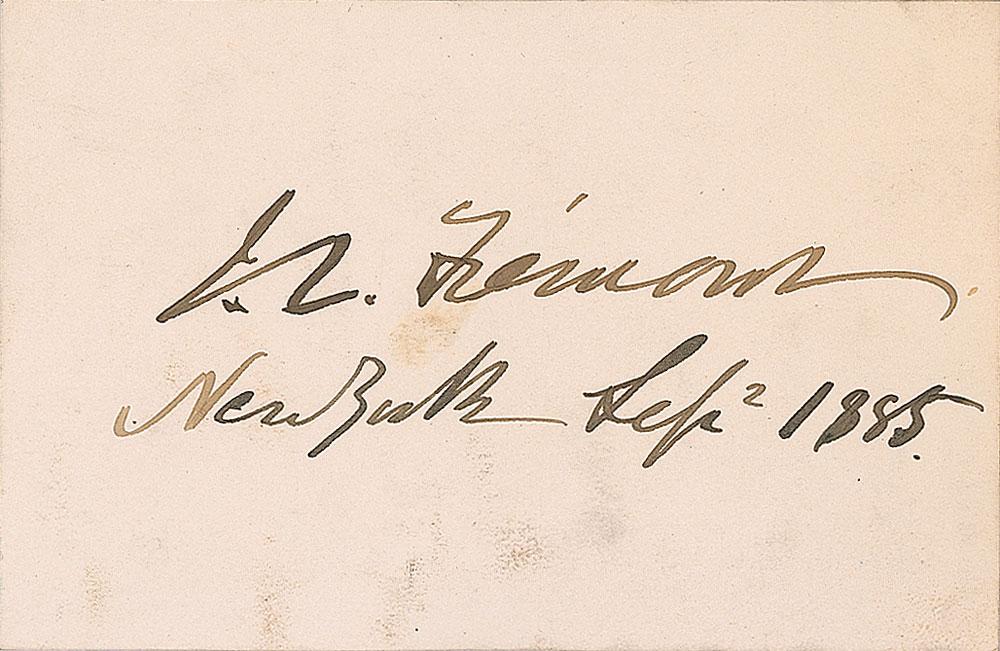 J. C. Frémont.
New York Sept 2 1885.